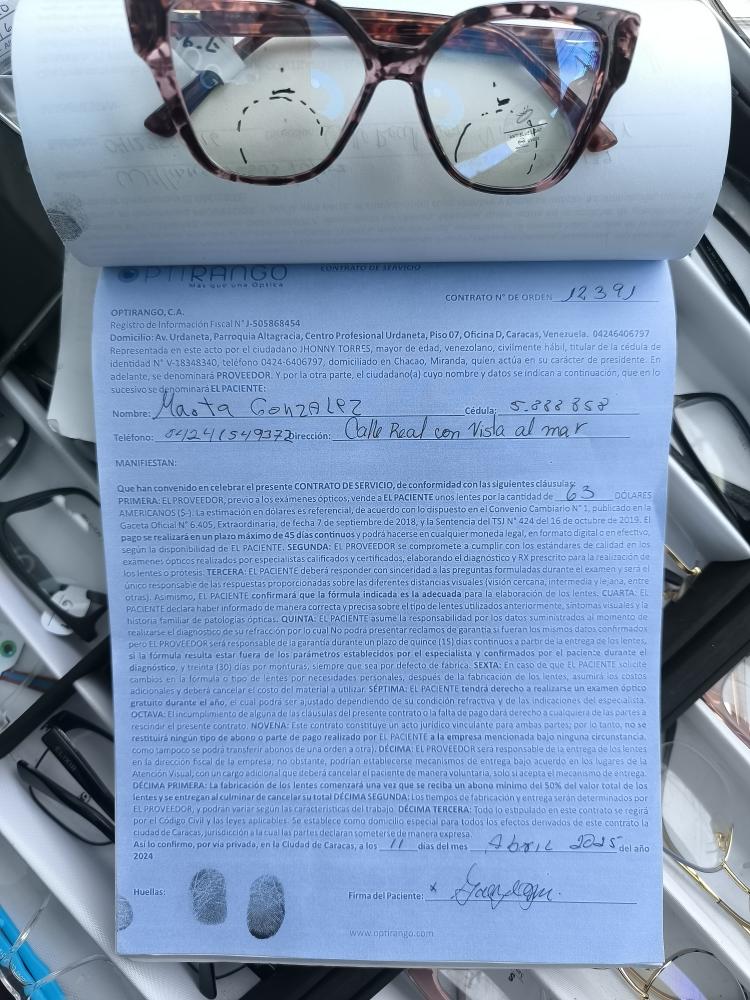 OPTIRANGO
Más que una Óptica
CONTRATO DE SERVICIO
CONTRATO N° DE ORDEN 12391
OPTIRANGO, C.A.
Registro de Información Fiscal N° J-505868454
Domicilio: Av. Urdaneta, Parroquia Altagracia, Centro Profesional Urdaneta, Piso 07, Oficina D, Caracas, Venezuela. 04246406797
Representada en este acto por el ciudadano JHONNY TORRES, mayor de edad, venezolano, civilmente hábil, titular de la cédula de
identidad N° V-18348340, teléfono 0424-6406797, domiciliado en Chacao, Miranda, quien actúa en su carácter de presidente. En
adelante, se denominará PROVEEDOR. Y por la otra parte, el ciudadano(a) cuyo nombre y datos se indican a continuación, que en lo
sucesivo se denominará EL PACIENTE:
Nombre: Marta GonzALEZ Cédula: 5.888858
Teléfono: 04241549372 Dirección: Calle Real con Vista al mar
MANIFIESTAN:
Que han convenido en celebrar el presente CONTRATO DE SERVICIO, de conformidad con las siguientes cláusulas:
PRIMERA: EL PROVEEDOR, previo a los exámenes ópticos, vende a EL PACIENTE unos lentes por la cantidad de 63 DÓLARES
AMERICANOS ($-). La estimación en dólares es referencial, de acuerdo con lo dispuesto en el Convenio Cambiario N° 1, publicado en la
Gaceta Oficial N° 6.405, Extraordinaria, de fecha 7 de septiembre de 2018, y la Sentencia del TSJ N° 424 del 16 de octubre de 2019. El
pago se realizará en un plazo máximo de 45 días continuos y podrá hacerse en cualquier moneda legal, en formato digital o en efectivo,
según la disponibilidad de EL PACIENTE. SEGUNDA: EL PROVEEDOR se compromete a cumplir con los estándares de calidad en los
exámenes ópticos realizados por especialistas calificados y certificados, elaborando el diagnóstico y RX prescrito para la realización de
los lentes o prótesis: TERCERA: EL PACIENTE deberá responder con sinceridad a las preguntas formuladas durante el examen y será el
único responsable de las respuestas proporcionadas sobre las diferentes distancias visuales (visión cercana, intermedia y lejana, entre
otras). Asimismo, EL PACIENTE confirmará que la fórmula indicada es la adecuada para la elaboración de los lentes. CUARTA: EL
PACIENTE declara haber informado de manera correcta y precisa sobre el tipo de lentes utilizados anteriormente, síntomas visuales y la
historia familiar de patologías ópticas. QUINTA: EL PACIENTE asume la responsabilidad por los datos suministrados al momento de
realizarse el diagnostico de su refracción por lo cual No podrá presentar reclamos de garantía si fueran los mismos datos confirmados
pero EL PROVEEDOR será responsable de la garantía durante un plazo de quince (15) días continuos a partir de la entrega de los lentes,
si la fórmula resulta estar fuera de los parámetros establecidos por el especialista y confirmados por el paciente durante el
diagnóstico, y treinta (30) días por monturas, siempre que sea por defecto de fabrica. SEXTA: En caso de que EL PACIENTE solicite
cambios en la fórmula o tipo de lentes por necesidades personales, después de la fabricación de los lentes, asumirá los costos
adicionales y deberá cancelar el costo del material a utilizar. SÉPTIMA: EL PACIENTE tendrá derecho a realizarse un examen óptico
gratuito durante el año, el cual podrá ser ajustado dependiendo de su condición refractiva y de las indicaciones del especialista.
OCTAVA: El incumplimiento de alguna de las cláusulas del presente contrato o la falta de pago dará derecho a cualquiera de las partes a
rescindir el presente contrato. NOVENA: Este contrato constituye un acto jurídico vinculante para ambas partes; por lo tanto, no se
restituirá ningún tipo de abono o parte de pago realizado por EL PACIENTE a la empresa mencionada bajo ninguna circunstancia,
como tampoco se podrá transferir abonos de una orden a otra). DÉCIMA: EL PROVEEDOR será responsable de la entrega de los lentes
en la dirección fiscal de la empresa; no obstante, podrían establecerse mecanismos de entrega bajo acuerdo en los lugares de la
Atención Visual, con un cargo adicional que deberá cancelar el paciente de manera voluntaria, solo si acepta el mecanismo de entrega.
DÉCIMA PRIMERA: La fabricación de los lentes comenzará una vez que se reciba un abono mínimo del 50% del valor total de los
lentes y se entregan al culminar de cancelar su total DÉCIMA SEGUNDA: Los tiempos de fabricación y entrega serán determinados por
EL PROVEEDOR, y podrán variar según las características del trabajo. DÉCIMA TERCERA: Todo lo estipulado en este contrato se regirá
por el Código Civil y las leyes aplicables. Se establece como domicilio especial para todos los efectos derivados de este contrato la
ciudad de Caracas, jurisdicción a la cual las partes declaran someterse de manera expresa.
Así lo confirmo, por vía privada, en la Ciudad de Caracas, a los 11 días del mes Abril 2025 del año
2024
Huellas:
Firma del Paciente: x
www.optirango.com